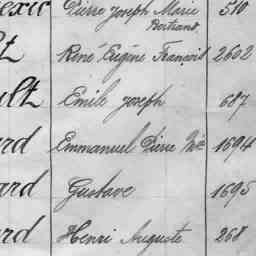 Pierre Joseph Marie 510
Bertrand
René Eugène François 2602
Emile Joseph 687
ard Emmanuel Pierre Mie 1694
ard Gustave 1695
ard Henri Auguste 268